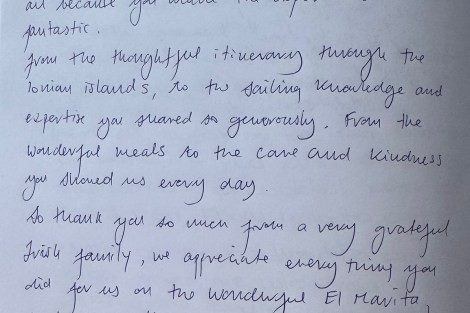 all because you
fantastic.
From the thoughtful itinerary through the
Ionian islands, to the sailing knowledge and
expertise you shared so generously. From the
wonderful meals to the care and kindness
you showed us every day.
So thank you so much from a very grateful
Irish family, we appreciate every thing you
did for us on the wonderful El Mavita,